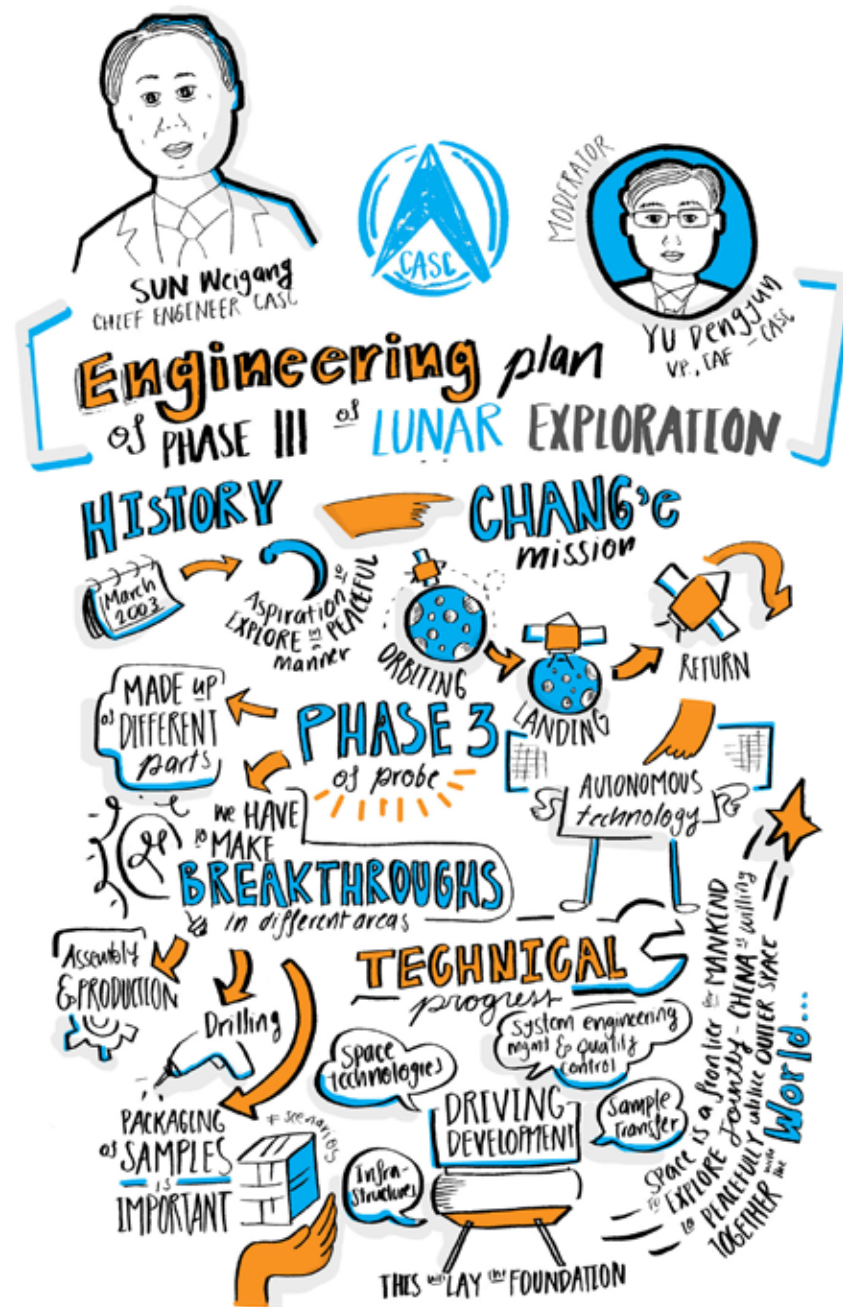 SUN Weigang
CHIEF ENGINEER CASC
CASC
MODERATOR
YU Dengyun
VP., CAF - CASC
Engineering plan
of PHASE III of LUNAR EXPLORATION
HISTORY
CHANG'e
mission
March
2003
Aspiration to
EXPLORE in a PEACEFUL
manner
ORBITING
LANDING
RETURN
MADE up
of DIFFERENT
parts
PHASE 3
of probe
AUTONOMOUS
technology
we HAVE
to MAKE
BREAKTHROUGHS
in different areas
Assembly
& PRODUCTION
Drilling
PACKAGING
of SAMPLES
IS
IMPORTANT
# scenarios
TECHNICAL
progress
Space
technologies
System engineering
mgmt & quality
control
DRIVING
DEVELOPMENT
Sample
Transfer
Infra-
structures
THIS will LAY the FOUNDATION
Space is a frontier for MANKIND
to EXPLORE JOINTLY - CHINA is willing
to PEACEFULLY utilice OUTER SPACE
TOGETHER with the World...